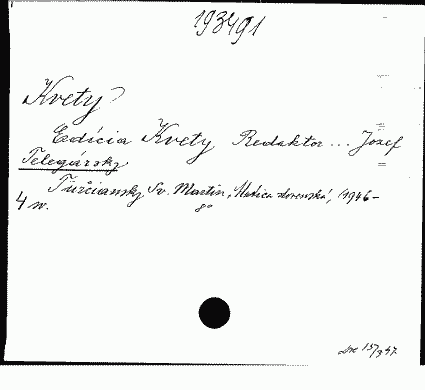 193491
Kvety
Edícia Kvety Redaktor ... Jozef
Telegársky
Turčiansky Sv. Martin, Matica slovenská, 1946-
4 w. 8°
15/9 47.